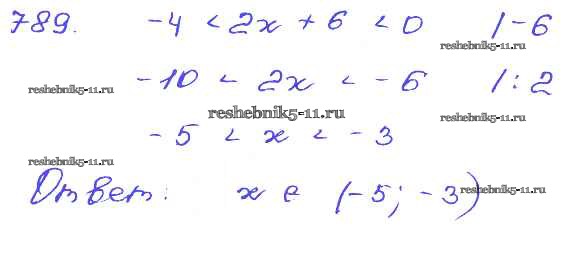 789. -4 < 2x + 6 < 0 /-6
reshebnik5-11.ru
-10 < 2x < -6 /:2
reshebnik5-11.ru
reshebnik5-11.ru
reshebnik5-11.ru
-5 < x < -3
reshebnik5-11.ru
Ответ: x е (-5; -3)
reshebnik5-11.ru